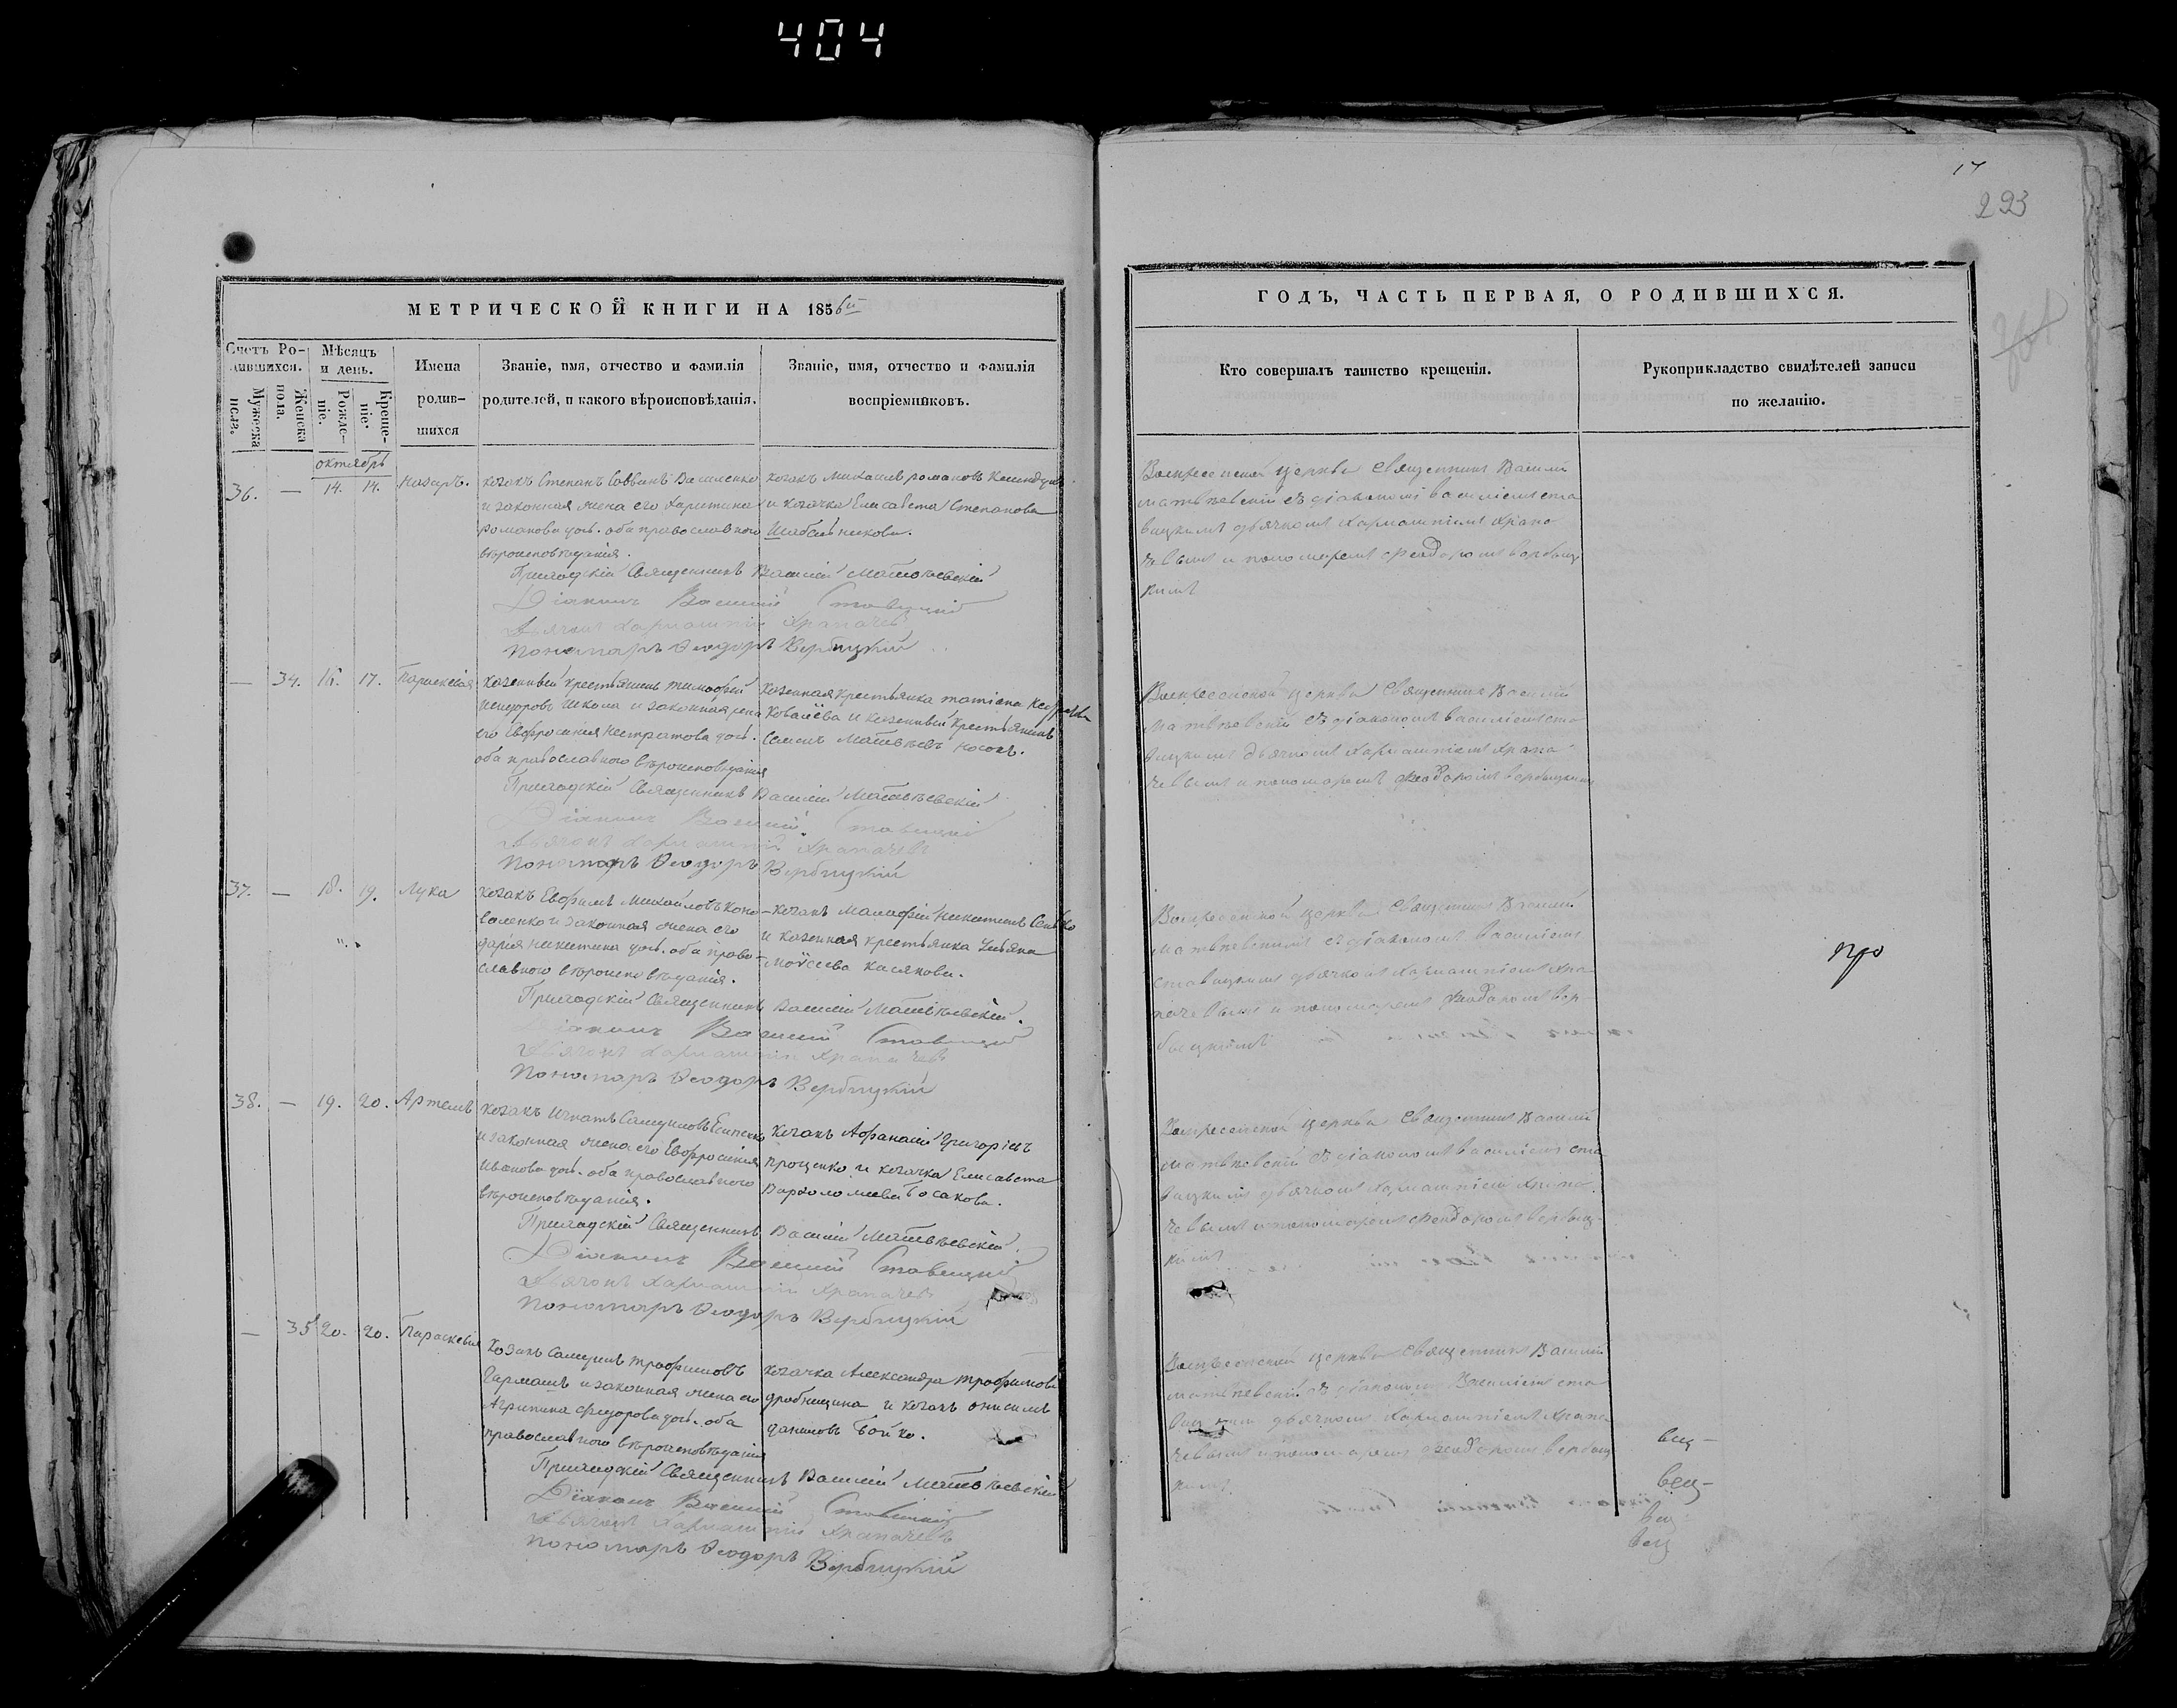 404
17
293
МЕТРИЧЕСКОЙ КНИГИ НА 1856й
Счетъ Родившихся.
Мужеска пола.
Женска пола.
Мѣсяцъ и день.
Рожденіе.
Крещеніе.
Имена родившихся
Званіе, имя, отчество и фамилія
родителей, и какого вѣроисповѣданія.
Званіе, имя, отчество и фамилія
воспріемниковъ.
октябрь
36. — 14. 14. Назаръ.
козакъ Стефанъ Саввинъ Василенко
и законная жена его Харитина
романова дочь. оба православного
вѣроисповѣданія.
козакъ Михаилъ романовъ
и козачка Елисавета Степанова
Шабельникова.
Приходскій Священникъ Василій Матвѣевскій
Діаконъ Василій Ставицкій
Дьячокъ Харлампій Храпачевъ
Пономарь Ѳеодоръ Вербицкій
— 34. 16. 17. Параскевія
казенный крестьянинъ тимофей
Школа и законная жена
его Евфросинія дочь.
оба православного вѣроисповѣданія
казенная крестьянка татіана
Ковалёва и казенный крестьянинъ
Семенъ Матвѣевъ носокъ.
Приходскій Священникъ Василій Матвѣевскій
Діаконъ Василій Ставицкій
Дьячокъ Харлампій Храпачевъ
Пономарь Ѳеодоръ Вербицкій
37. — 18. 19. Лука
козакъ Евфимъ Михайловъ Коно-
валенко и законная жена его
дарія никитина дочь. оба право-
славного вѣроисповѣданія.
козакъ никитинъ
и казенная крестьянка Ульяна
Моѵсеева касянова.
Приходскій Священникъ Василій Матвѣевскій.
Діаконъ Василій Ставицкій
Дьячокъ Харлампій Храпачевъ
Пономарь Ѳеодоръ Вербицкій
38. — 19. 20. Артемъ
козакъ Игнатъ Самуиловъ
и законная жена его Евфросинія
Иванова дочь. оба православного
вѣроисповѣданія.
козакъ Афанасій Григоріевъ
проценко и козачка Елисавета
Варфоломеева босакова.
Приходскій Священникъ Василій Матвѣевскій.
Діаконъ Василій Ставицкій
Дьячокъ Харлампій Храпачевъ
Пономарь Ѳеодоръ Вербицкій
— 35 20. 20. Параскевія
козакъ Самуилъ трофимовъ
Гармашъ и законная жена его
Агрипина федорова дочь. оба
православного вѣроисповѣданія
козачка Александра трофимова
дробницина и козакъ онисимъ
даниловъ бойко.
Приходскій Священникъ Василій Матвѣевскій
Діаконъ Василій Ставицкій
Дьячокъ Харлампій Храпачевъ
Пономарь Ѳеодоръ Вербицкій
ГОДЪ, ЧАСТЬ ПЕРВАЯ, О РОДИВШИХСЯ.
Кто совершалъ таинство крещенія.
Рукоприкладство свидѣтелей записи
по желанію.
Воскресенской церкви Священникъ Василій
матвѣевскій съ діакономъ василіемъ ста
вицкимъ дьячкомъ Харлампіемъ Храпа
чевымъ и пономаремъ феодоромъ вербиц
кимъ
Воскресенской церкви Священникъ Василій
Матвѣевскій съ діакономъ василіемъ ста
вицкимъ дьячкомъ Харлампіемъ Храпа
чевымъ и пономаремъ феодоромъ вербицкимъ
Воскресенской церкви Священникъ Василій
матвѣевскій съ діакономъ василіемъ
ставицкимъ дьячкомъ Харлампіемъ Хра
пачевымъ и пономаремъ феодоромъ вер
бицкимъ
Воскресенской церкви Священникъ Василій
матвѣевскій съ діакономъ василіемъ ста
вицкимъ дьячкомъ Харлампіемъ Храпа
чевымъ и пономаремъ феодоромъ вербиц
кимъ
Воскресенской церкви Священникъ Василій
матвѣевскій съ діакономъ Василіемъ ста
вицкимъ дьячкомъ Харлампіемъ Храпа
чевымъ и пономаремъ феодоромъ вербиц
кимъ